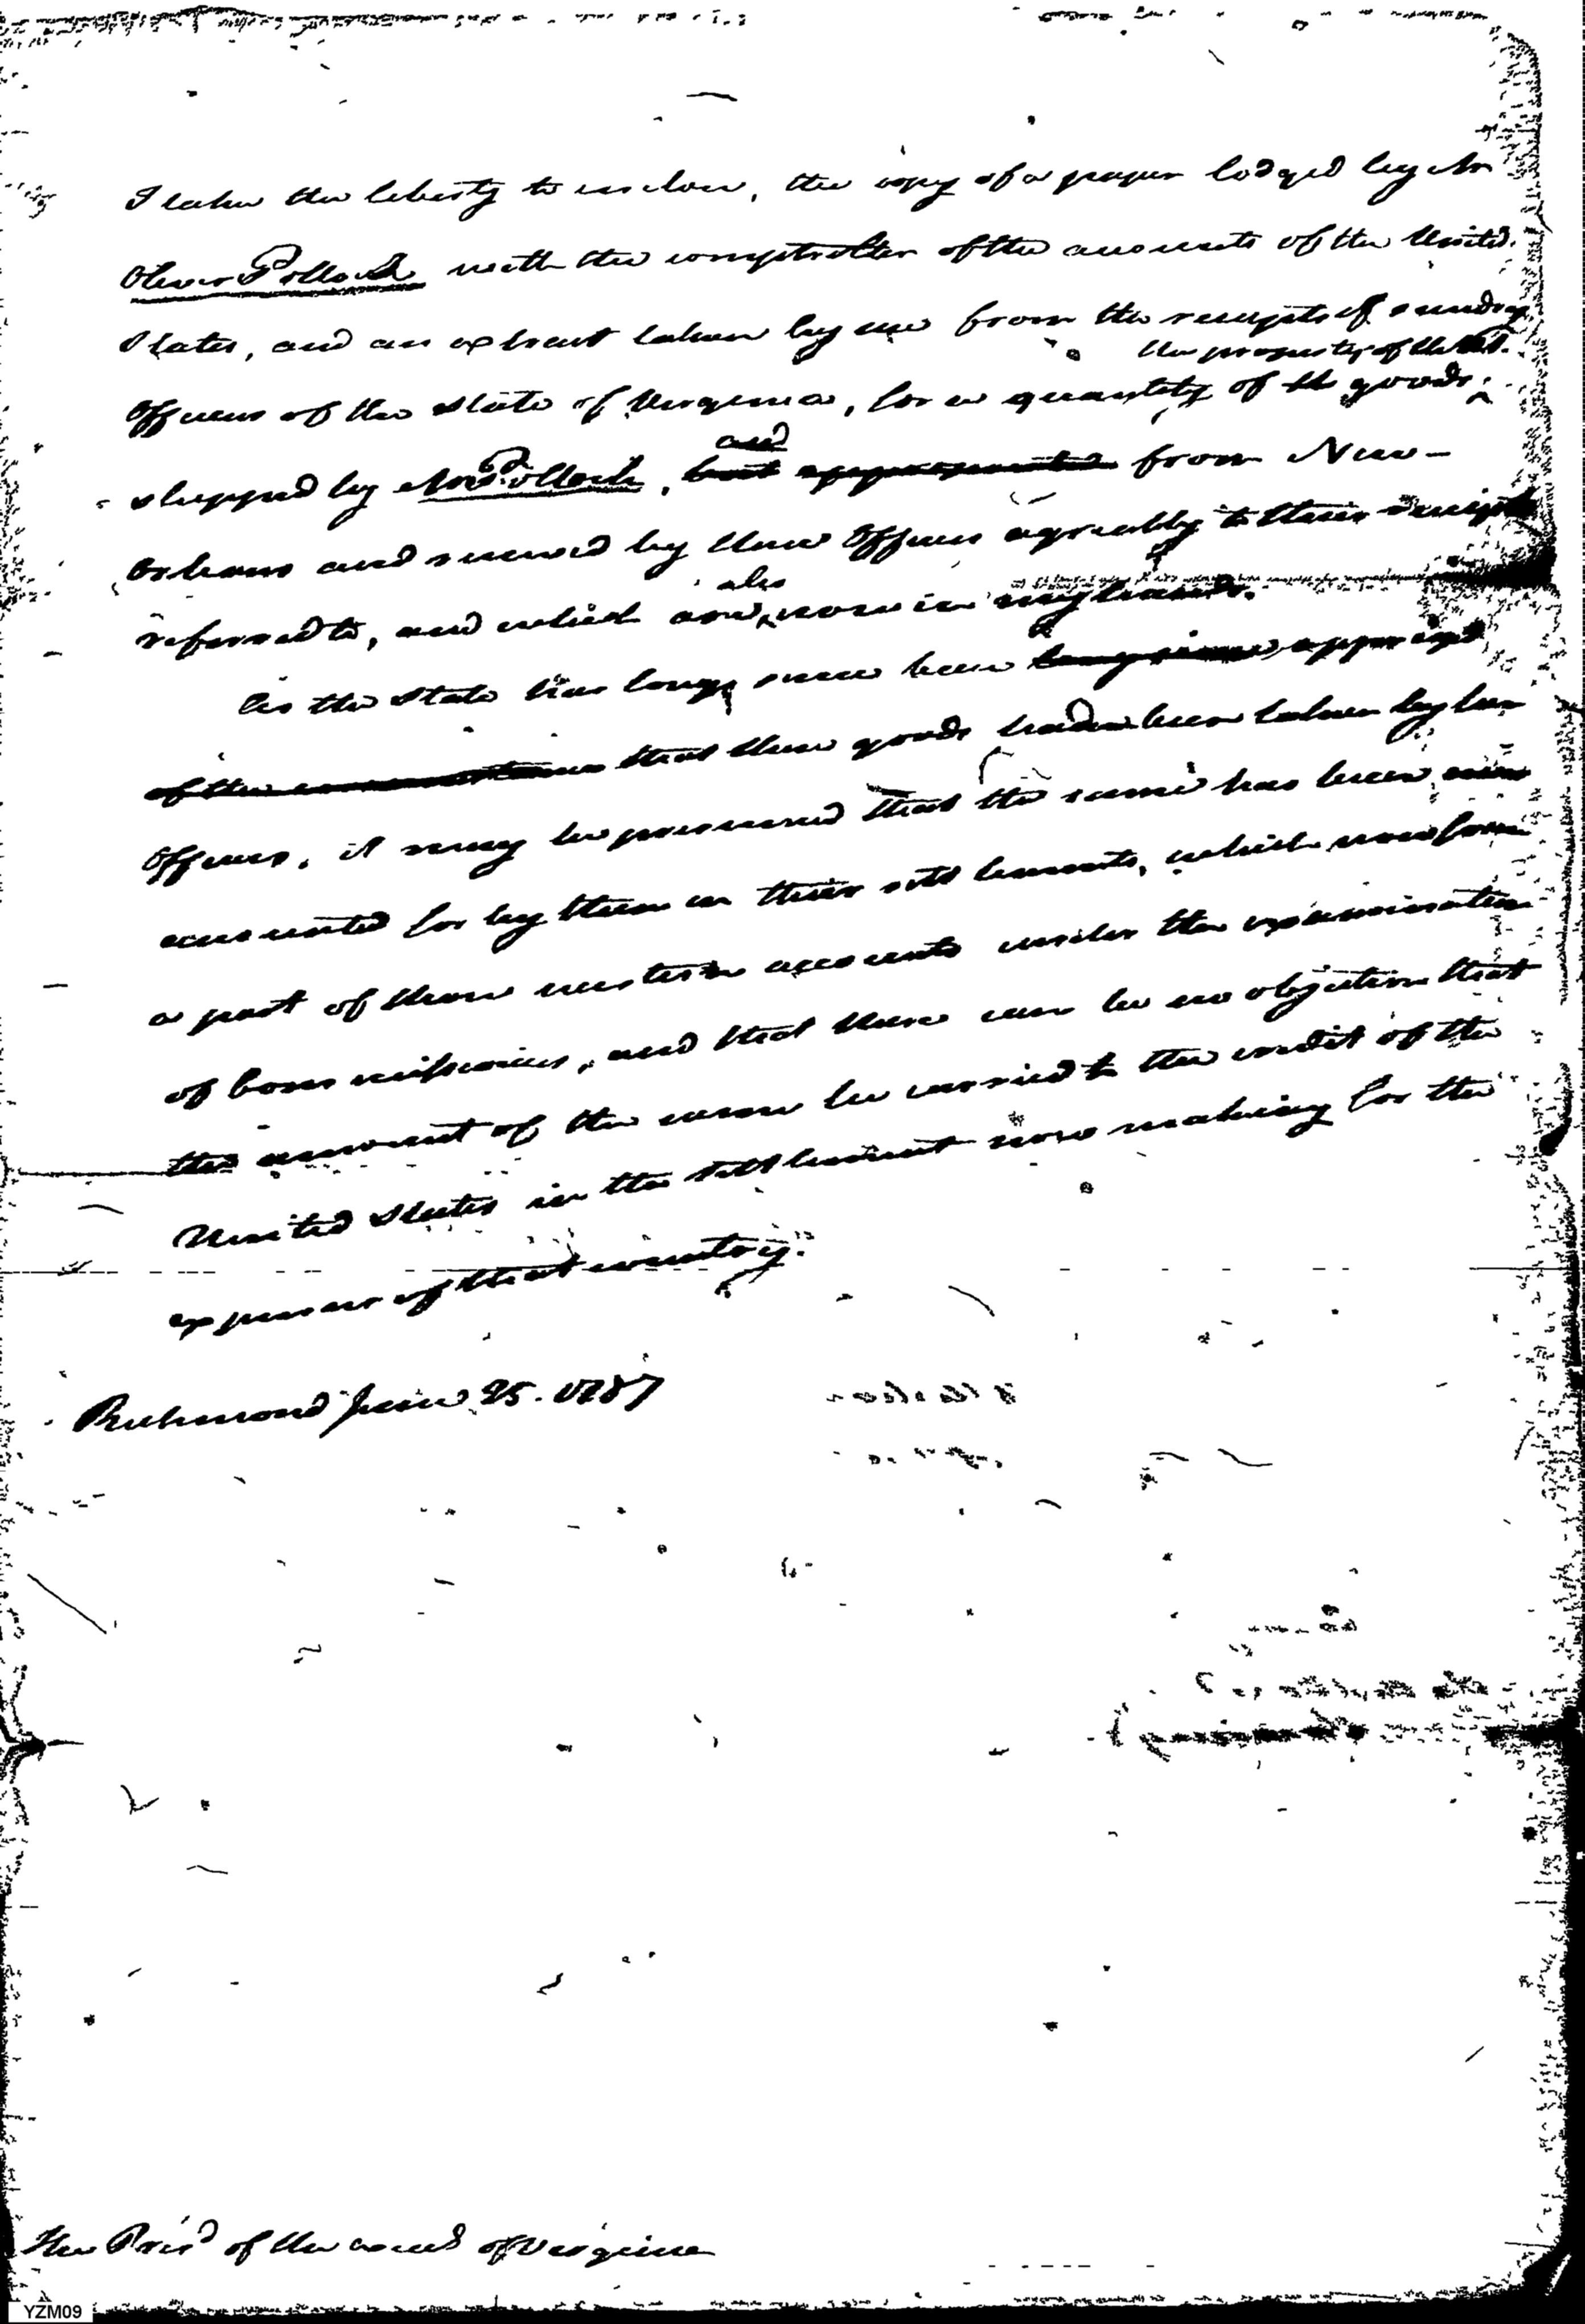 I take the liberty to inclose, the copy of a paper lodged by Mr
Oliver Pollock with the comptroller of the accounts of the United
States, and an extract taken by me from the receipts of sundry
the property of the U.S.
Officers of the State of Virginia, for a quantity of th goods,
and
shipped by Mr Pollock, but from New-
Orleans and received by these Officers agreeably to their receipts
also
referred to, and which are now in my hands.
As the State has long since been apprised
of the that these goods had been taken by her
Officers, it may be presumed that the same has been
accounted for by them in their settlements, which now form
a part of those western accounts under the examination
of commissioners, and that there can be no objection that
the amount of the same be carried to the credit of the
United States in the settlement now making for the
expences of that country.
Richmond June 25. 1787
The Presd of the council of Virginia
YZM09